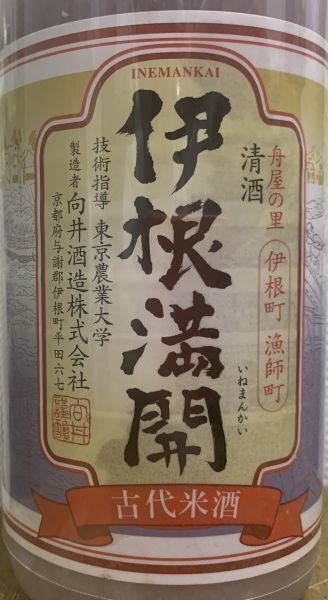 INEMANKAI
舟屋の里 伊根町 漁師町
清酒
伊根満開
いねまんかい
技術指導 東京農業大学
製造者 向井酒造株式会社
京都府与謝郡伊根町平田六七
古代米酒